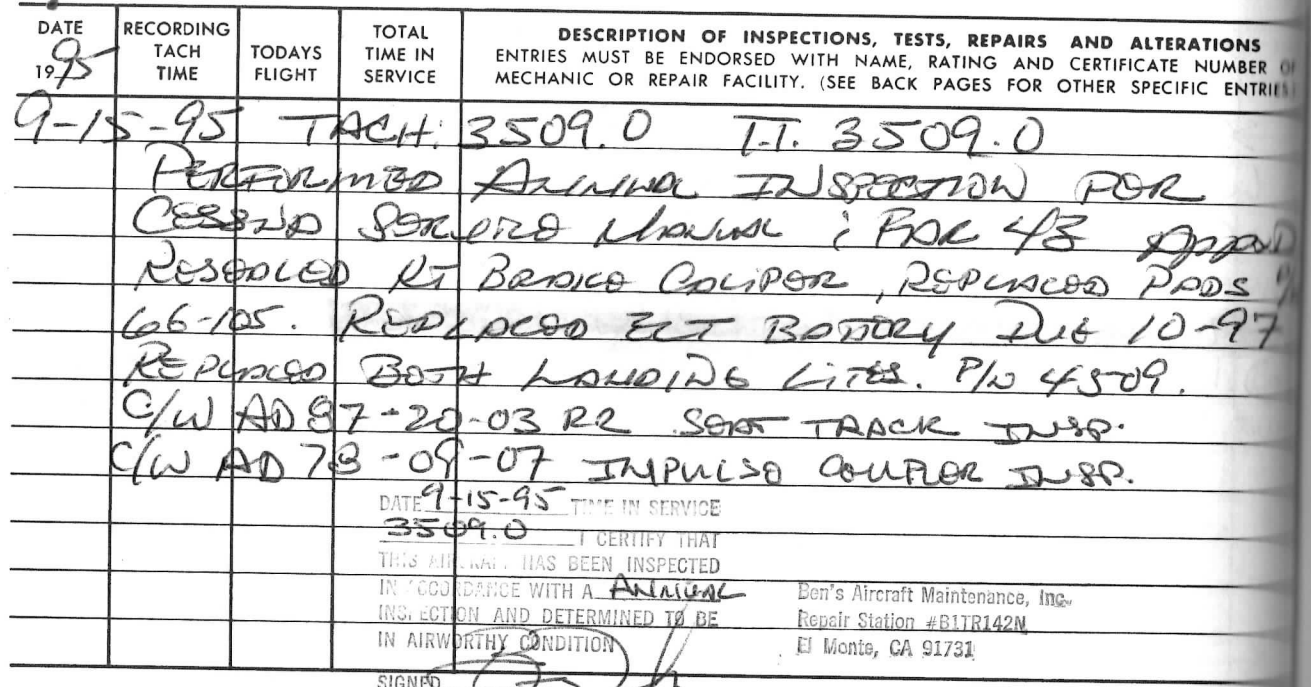 DATE
1995
RECORDING
TACH
TIME
TODAYS
FLIGHT
TOTAL
TIME IN
SERVICE
DESCRIPTION OF INSPECTIONS, TESTS, REPAIRS AND ALTERATIONS
ENTRIES MUST BE ENDORSED WITH NAME, RATING AND CERTIFICATE NUMBER
MECHANIC OR REPAIR FACILITY. (SEE BACK PAGES FOR OTHER SPECIFIC ENTRIES
9-15-95 TACH: 3509.0 T.T. 3509.0
PERFORMED ANNUAL INSPECTION PER
CESSNA SERVICE MANUAL & FAR 43 APPEND
RESEALED RT BRAKE CALIPER, REPLACED PADS P/N
66-105. REPLACED ELT BATTERY DUE 10-97
REPLACED BOTH LANDING LITES. P/N 4509.
C/W AD 87-20-03 R2 SEAT TRACK INSP.
C/W AD 78-09-07 IMPULSE COUPLER INSP.
DATE 9-15-95 TIME IN SERVICE
3509.0 I CERTIFY THAT
THIS AIRCRAFT HAS BEEN INSPECTED
IN ACCORDANCE WITH A ANNUAL
INSPECTION AND DETERMINED TO BE
IN AIRWORTHY CONDITION
SIGNED
Ben's Aircraft Maintenance, Inc.
Repair Station #B1TR142N
El Monte, CA 91731